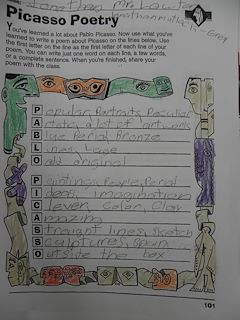 Jonathan Mr. Lawton
Jonathan
Picasso Poetry
You've learned a lot about Pablo Picasso. Now use what you've
learned to write a poem about Picasso on the lines below. Use
the first letter on the line as the first letter of each line of your
poem. You can write just one word on each line, a few words,
or a complete sentence. When you're finished, share your
poem with the class.
Popular Portraits Peculiar
a lot of artworks
Blue Period Bronze
Lines, Love
Old original
Paintings, People, Period
Ideas, imagination
Clever, Color, Clay
Amazing
Straight lines, Sketch
Sculptures, Spain
Outside the box
101